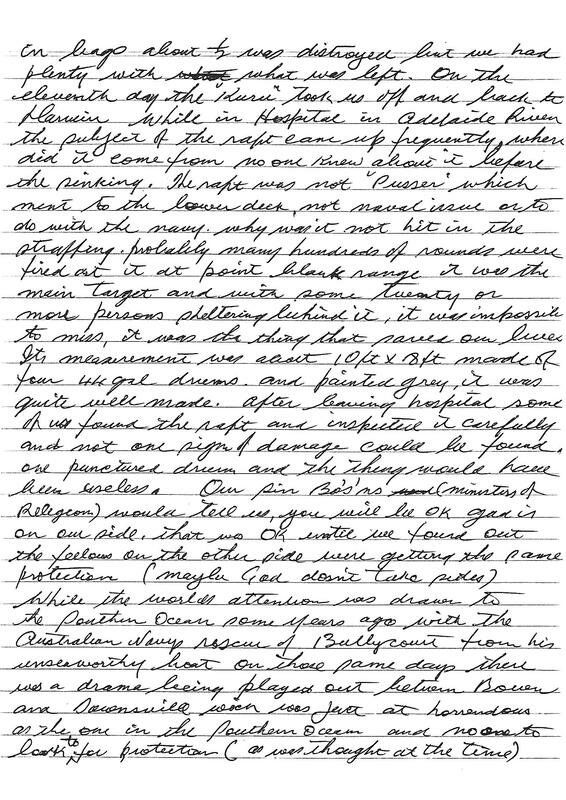 En bags about ½ was distroyed but we had
plenty with what was left. On the
eleventh day the "Kuru" took us off and back to
Darwin While in Hospital in Adelaide River
the subject of the raft came up frequently, where
did it come from no one knew about it before
the sinking. The raft was not "Pusser" which
ment to the lower deck, not naval issue or to
do with the navy. why was it not hit in the
straffing. probably many hundreds of rounds were
fired at it at point blank range it was the
main target and with some twenty or
more persons sheltering behind it, it was impossible
to miss, it was the thing that saved our lives
Its measurement was about 10ft x 8ft made of
four 44 gal drums. and painted grey, it was
quite well made. After leaving hospital some
of us found the raft and inspected it carefully
and not one sign of damage could be found.
one punctured drum and the thing would have
been useless. Our sin Bos'ns (ministers of
Relegeon) would tell us, you will be OK god is
on our side. that was OK until we found out
the fellows on the other side were getting the same
protection (maybe God don't take sides)
While the worlds attention was drawn to
the Southern Ocean some years ago with the
Australian Navys rescue of Bullycourt from his
unseaworthy boat on those same days there
was a drama being played out between Bowen
and Townsville wich was just as horrendous
as the one in the Southern Ocean and no one to
look to for protection (as was thought at the time)